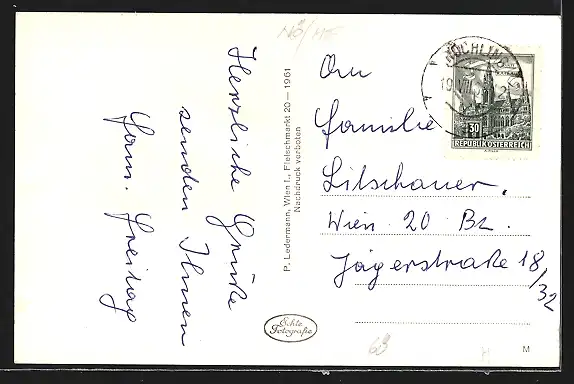 Herzliche Grüße
senden Ihnen
Fam. Freitag
P. Ledermann, Wien I., Fleischmarkt 20 — 1961
Nachdruck verboten
Echte
Fotografie
NÖ/
An
Familie
Litschauer.
Wien 20 Bz.
Jägerstraße 18/32
NÖCHLING
30
REPUBLIK ÖSTERREICH
63
M